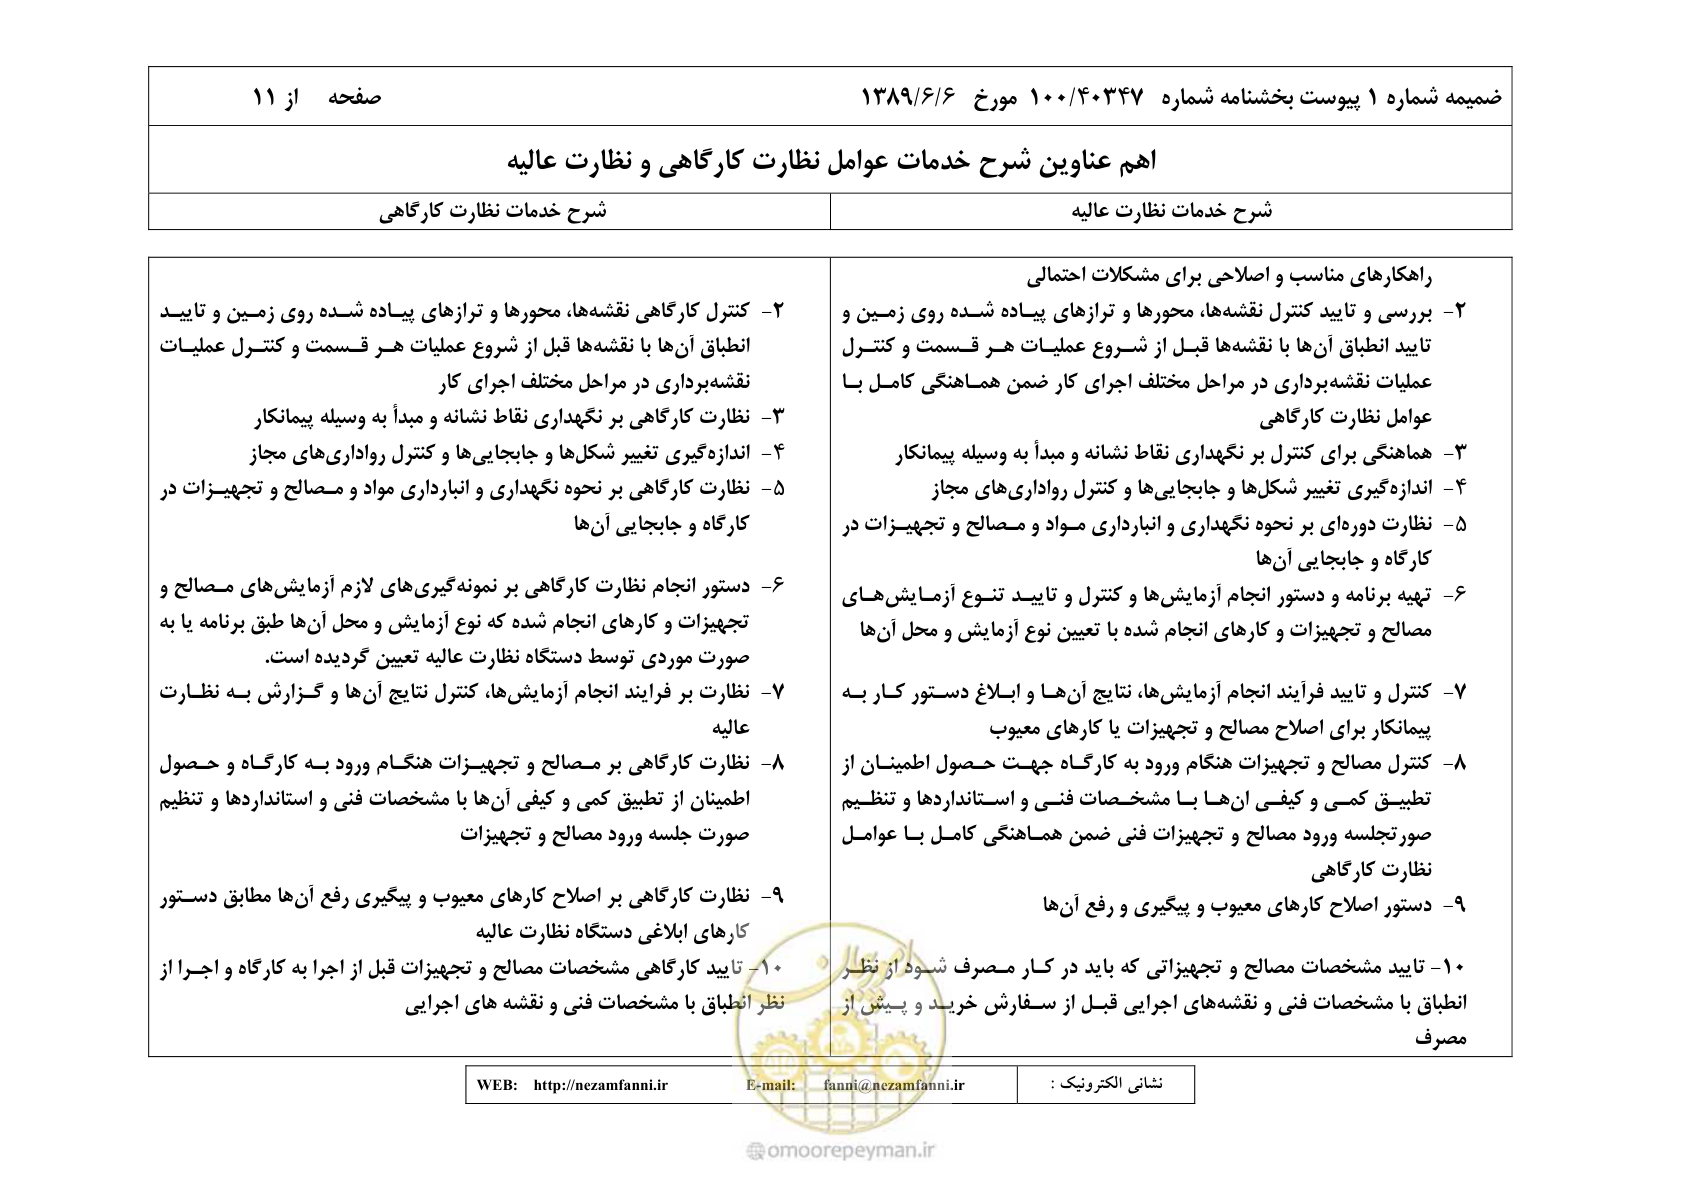 ضمیمه شماره ۱ پیوست بخشنامه شماره ۱۰۰/۴۰۳۴۷ مورخ ۱۳۸۹/۶/۶
صفحه از ۱۱
اهم عناوین شرح خدمات عوامل نظارت کارگاهی و نظارت عالیه
شرح خدمات نظارت عالیه
شرح خدمات نظارت کارگاهی
راهکارهای مناسب و اصلاحی برای مشکلات احتمالی
۲- بررسی و تایید کنترل نقشه‌ها، محورها و ترازهای پیاده شده روی زمین و
تایید انطباق آن‌ها با نقشه‌ها قبل از شروع عملیات هر قسمت و کنترل
عملیات نقشه‌برداری در مراحل مختلف اجرای کار ضمن هماهنگی کامل با
عوامل نظارت کارگاهی
۳- هماهنگی برای کنترل بر نگهداری نقاط نشانه و مبدأ به وسیله پیمانکار
۴- اندازه‌گیری تغییر شکل‌ها و جابجایی‌ها و کنترل رواداری‌های مجاز
۵- نظارت دوره‌ای بر نحوه نگهداری و انبارداری مواد و مصالح و تجهیزات در
کارگاه و جابجایی آن‌ها
۶- تهیه برنامه و دستور انجام آزمایش‌ها و کنترل و تایید تنوع آزمایش‌های
مصالح و تجهیزات و کارهای انجام شده با تعیین نوع آزمایش و محل آن‌ها
۷- کنترل و تایید فرآیند انجام آزمایش‌ها، نتایج آن‌ها و ابلاغ دستور کار به
پیمانکار برای اصلاح مصالح و تجهیزات یا کارهای معیوب
۸- کنترل مصالح و تجهیزات هنگام ورود به کارگاه جهت حصول اطمینان از
تطبیق کمی و کیفی ان‌ها با مشخصات فنی و استانداردها و تنظیم
صورتجلسه ورود مصالح و تجهیزات فنی ضمن هماهنگی کامل با عوامل
نظارت کارگاهی
۹- دستور اصلاح کارهای معیوب و پیگیری و رفع آن‌ها
۱۰- تایید مشخصات مصالح و تجهیزاتی که باید در کار مصرف شود از نظر
انطباق با مشخصات فنی و نقشه‌های اجرایی قبل از سفارش خرید و پیش از
مصرف
۲- کنترل کارگاهی نقشه‌ها، محورها و ترازهای پیاده شده روی زمین و تایید
انطباق آن‌ها با نقشه‌ها قبل از شروع عملیات هر قسمت و کنترل عملیات
نقشه‌برداری در مراحل مختلف اجرای کار
۳- نظارت کارگاهی بر نگهداری نقاط نشانه و مبدأ به وسیله پیمانکار
۴- اندازه‌گیری تغییر شکل‌ها و جابجایی‌ها و کنترل رواداری‌های مجاز
۵- نظارت کارگاهی بر نحوه نگهداری و انبارداری مواد و مصالح و تجهیزات در
کارگاه و جابجایی آن‌ها
۶- دستور انجام نظارت کارگاهی بر نمونه‌گیری‌های لازم آزمایش‌های مصالح و
تجهیزات و کارهای انجام شده که نوع آزمایش و محل آن‌ها طبق برنامه یا به
صورت موردی توسط دستگاه نظارت عالیه تعیین گردیده است.
۷- نظارت بر فرایند انجام آزمایش‌ها، کنترل نتایج آن‌ها و گزارش به نظارت
عالیه
۸- نظارت کارگاهی بر مصالح و تجهیزات هنگام ورود به کارگاه و حصول
اطمینان از تطبیق کمی و کیفی آن‌ها با مشخصات فنی و استانداردها و تنظیم
صورت جلسه ورود مصالح و تجهیزات
۹- نظارت کارگاهی بر اصلاح کارهای معیوب و پیگیری رفع آن‌ها مطابق دستور
کارهای ابلاغی دستگاه نظارت عالیه
۱۰- تایید کارگاهی مشخصات مصالح و تجهیزات قبل از اجرا به کارگاه و اجرا از
نظر انطباق با مشخصات فنی و نقشه های اجرایی
نشانی الکترونیک :
WEB: http://nezamfanni.ir E-mail: fanni@nezamfanni.ir
امور پیمان
@omoorepeyman.ir